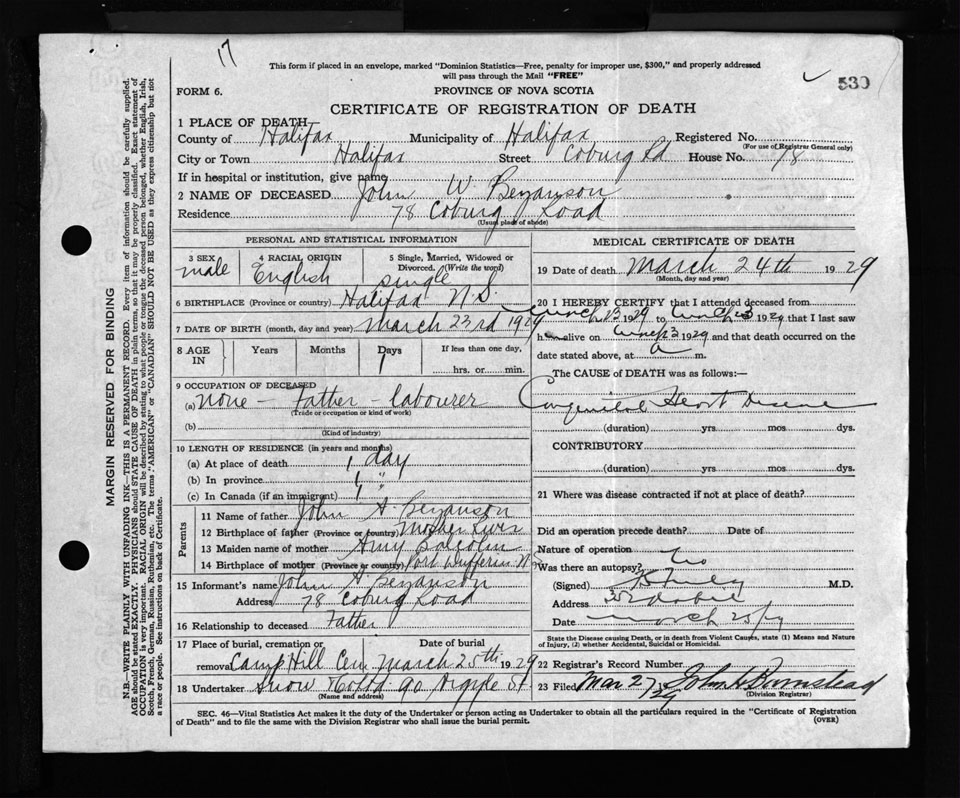 17
This form if placed in an envelope, marked "Dominion Statistics—Free, penalty for improper use, $300," and properly addressed
will pass through the Mail "FREE"
530
FORM 6.
PROVINCE OF NOVA SCOTIA
CERTIFICATE OF REGISTRATION OF DEATH
1 PLACE OF DEATH
County of Halifax Municipality of Halifax Registered No.
(For use of Registrar General only)
City or Town Halifax Street Coburg Rd House No. 78
If in hospital or institution, give name
2 NAME OF DECEASED John W. Bezanson
Residence 78 Coburg Road
(Usual place of abode)
PERSONAL AND STATISTICAL INFORMATION
3 SEX male
4 RACIAL ORIGIN English
5 Single, Married, Widowed or Divorced. (Write the word) single
6 BIRTHPLACE (Province or country) Halifax N.S.
7 DATE OF BIRTH (month, day and year) March 23rd 1929
8 AGE IN Years Months Days 1 If less than one day, hrs. or min.
9 OCCUPATION OF DECEASED
(a) none – Father – labourer
(Trade or occupation or kind of work)
(b)
(Kind of industry)
10 LENGTH OF RESIDENCE (in years and months)
(a) At place of death 1 day
(b) In province 1 "
(c) In Canada (if an immigrant) 1
Parents
11 Name of father John A. Bezanson
12 Birthplace of father (Province or country)
13 Maiden name of mother Amy
14 Birthplace of mother (Province or country) Port Dufferin N.S.
15 Informant's name John A. Bezanson
Address 78 Coburg Road
16 Relationship to deceased Father
17 Place of burial, cremation or removal Camp Hill Cem
Date of burial March 25th 1929
18 Undertaker Snow & Co Ltd 90 Argyle St
(Name and address)
MEDICAL CERTIFICATE OF DEATH
19 Date of death March 24th 1929
(Month, day and year)
20 I HEREBY CERTIFY that I attended deceased from
March 23 1929 to March 23 1929 that I last saw
h alive on March 23 1929 and that death occurred on the
date stated above, at a m.
The CAUSE of DEATH was as follows:—
Congenital Heart Disease
(duration) yrs mos dys.
CONTRIBUTORY
(duration) yrs. mos. dys.
21 Where was disease contracted if not at place of death?
Did an operation precede death? Date of
Nature of operation
Was there an autopsy? No
(Signed) M.D.
Address
Date March 25/29
State the Disease causing Death, or in death from Violent Causes, state (1) Means and Nature
of Injury, (2) whether Accidental, Suicidal or Homicidal.
22 Registrar's Record Number
23 Filed Mar 27/29 John A Barnstead
(Division Registrar)
SEC. 46—Vital Statistics Act makes it the duty of the Undertaker or person acting as Undertaker to obtain all the particulars required in the "Certificate of Registration
of Death" and to file the same with the Division Registrar who shall issue the burial permit.
(OVER)
MARGIN RESERVED FOR BINDING
N.B.—WRITE PLAINLY WITH UNFADING INK—THIS IS A PERMANENT RECORD. Every item of information should be carefully supplied.
AGE should be stated EXACTLY. PHYSICIANS should STATE CAUSE OF DEATH in plain terms, so that it may be properly classified. Exact statement of
OCCUPATION is very important. RACIAL ORIGIN will be described by stating to what people or tongue the deceased person belonged, whether English, Irish,
Scotch, French, German, Russian, Ruthenian, etc. The terms "AMERICAN" or "CANADIAN" SHOULD NOT BE USED as they express citizenship but not
a race or people. See instructions on back of Certificate.